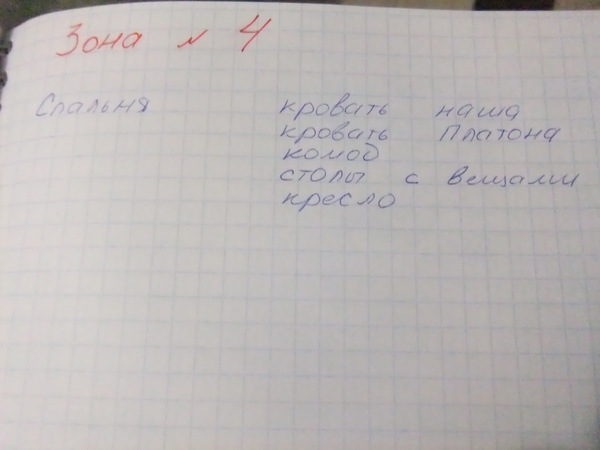 Зона № 4
Спальня кровать наша
кровать Платона
комод
столы с вещами
кресло